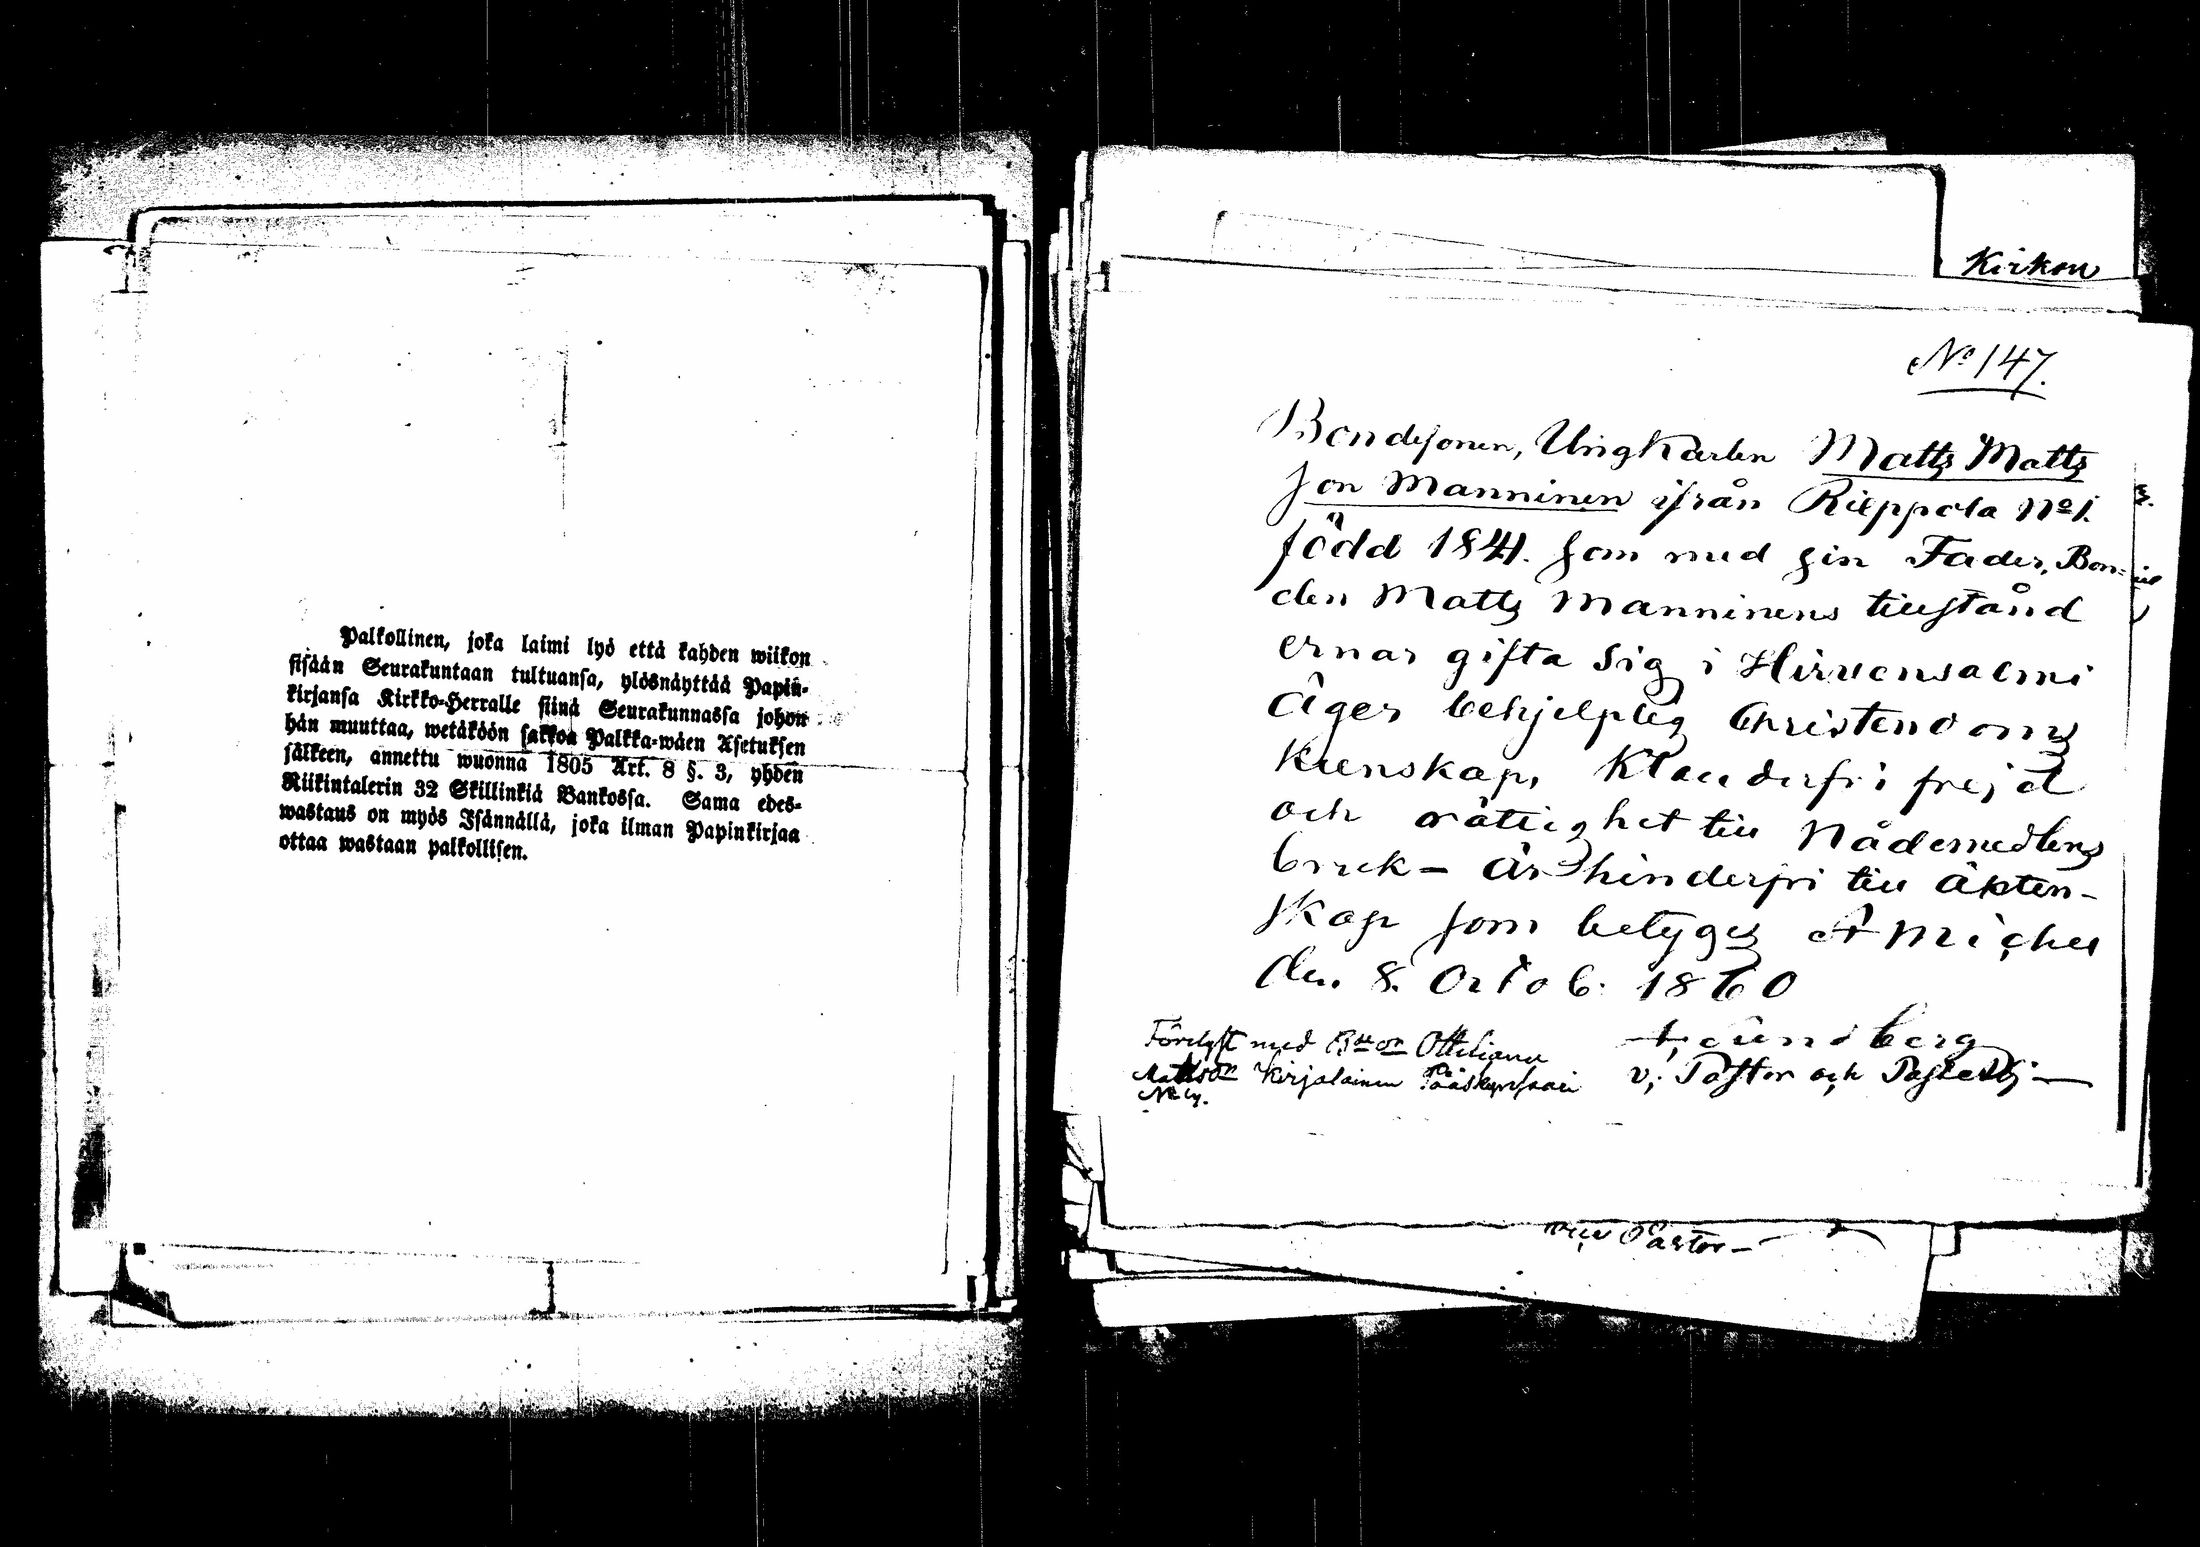 Palkollinen, joka laimi lyö että kahden wiikon
sisään Seurakuntaan tultuansa, ylösnäyttää Papin-
kirjansa Kirkko-Herralle siinä Seurakunnassa johon
hän muuttaa, wetäköön sakkoa Palkka-wäen Asetuksen
jälkeen, annettu wuonna 1805 Art. 8 §. 3, yhden
Riikintalerin 32 Skillinkiä Bankossa. Sama edes-
wastaus on myös Isännällä, joka ilman Papinkirjaa
ottaa wastaan palkollisen.
Kirkon
No 147.
Bondesonen, Ungkarlen Matts Matts
son Manninen ifrån Rieppola No 1.
född 1841. som med sin Fader, Bon=
den Matts Manninens tillstånd
ernar gifta sig i Hirvensalmi
äger behjelplig Christendoms
kunskap, Klanderfri frejd
och rättighet till Nådemedlens
bruk - är hinderfri till äkten-
skap som betygas St Michel
den 8. Octob. 1860
Lundberg
v. Pastor och
Förelyst med
Kirjalainen
Pastor